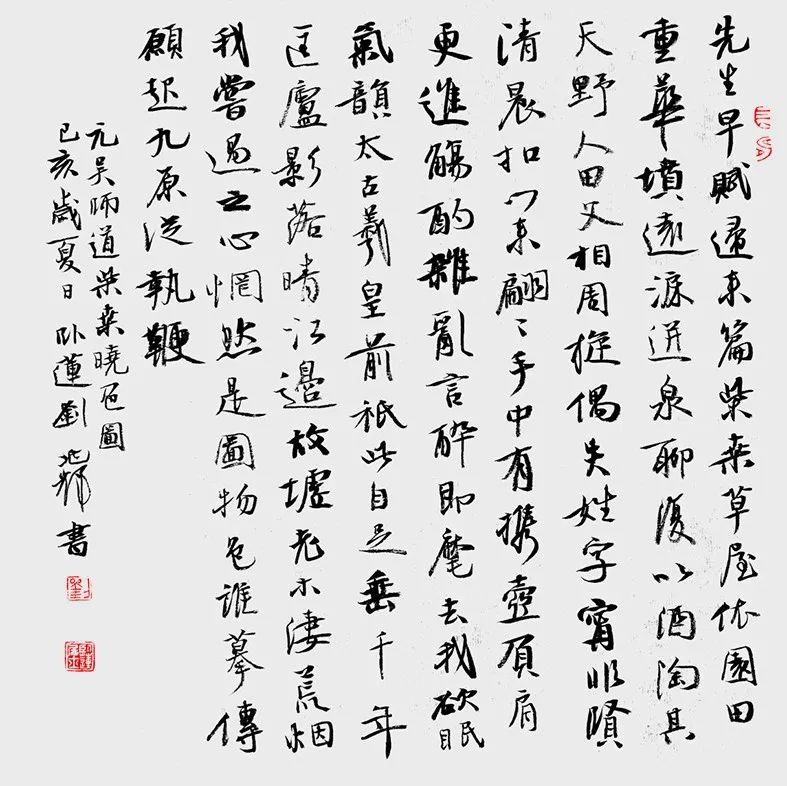 先生早賦歸来篇柴桑草屋依園田
重華墳遠淚迸泉聊復以酒陶其
天野人田父相周旋偶失姓字甯非賢
清晨扣门来翩〻手中有攜壺頂肩
更進觴酌雜亂言醉即麾去我欲眠
氣韻太古羲皇前祇此自足垂千年
匡廬影落晴江邊故墟老木淒荒烟
我嘗過之心惘然是圖物色誰摹傳
願起九原從執鞭
元吳師道柴桑曉色圖
己亥歲夏日卧蓮劉書